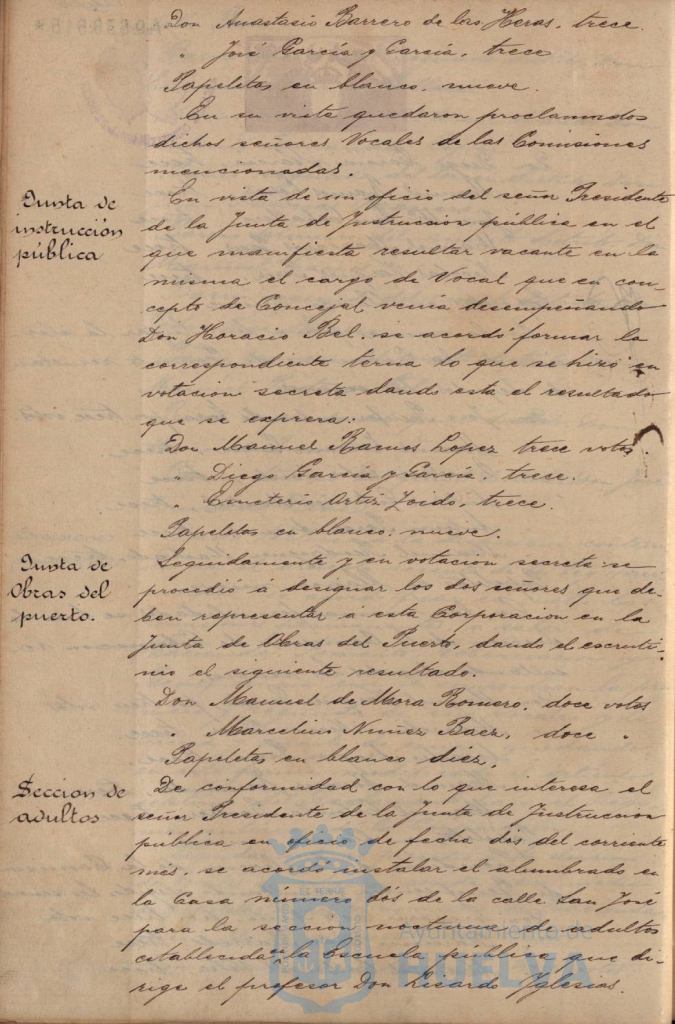 Don Anastasio Barrero de las Heras, trece.
" José García y García, trece
Papeletas en blanco, nueve.
En su vista quedaron proclamados
dichos señores Vocales de las Comisiones
mencionadas.
Junta de
instrucción
pública
En vista de un oficio del señor Presidente
de la Junta de Instruccion pública en el
que manifiesta resultar vacante en la
misma el cargo de Vocal que en con-
cepto de Concejal venia desempeñando
Don Horacio Bel, se acordó formar la
correspondiente terna lo que se hizo en
votacion secreta dando esta el resultado
que se expresa:
Don Manuel Ramos Lopez trece votos.
" Diego García y García, trece.
" Emeterio Ortiz Zoido, trece.
Papeletas en blanco, nueve.
Junta de
Obras del
puerto.
Seguidamente y en votacion secreta se
procedió á designar los dos señores que de-
ben representar á esta Corporacion en la
Junta de Obras del Puerto, dando el escruti-
nio el siguiente resultado.
Don Manuel de Mora Romero, doce votos
" Marcelino Nuñez Baez, doce "
Papeletas en blanco diez.
Seccion de
adultos
De conformidad con lo que interesa el
señor Presidente de la Junta de Instruccion
pública en oficio de fecha dós del corriente
mes, se acordó instalar el alumbrado en
la Casa número dós de la calle San José
para la seccion nocturna de adultos
establecida en la Escuela pública que di-
rige el profesor Don Lisardo Yglesias.
Ayuntamiento de
HUELVA